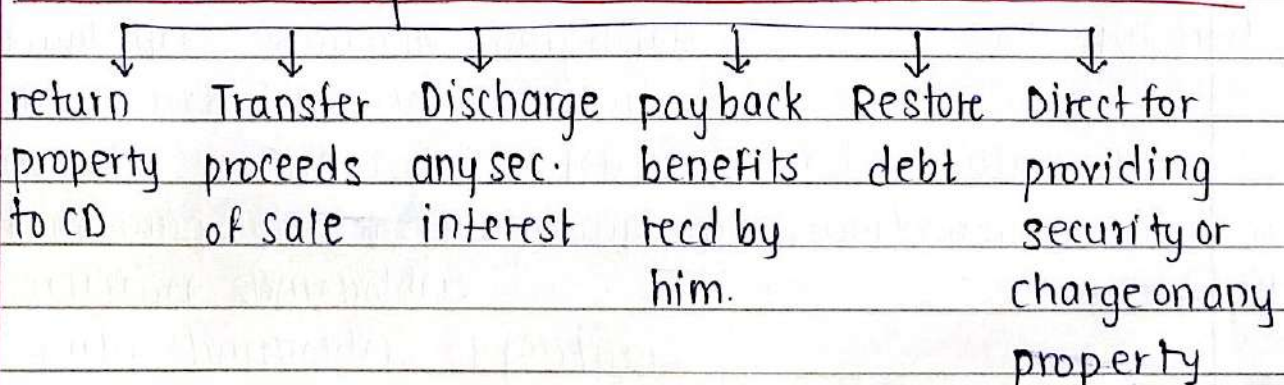 return
property
to CD
Transfer
proceeds
of sale
Discharge
any sec.
interest
pay back
benefits
recd by
him.
Restore
debt
Direct for
providing
security or
charge on any
property